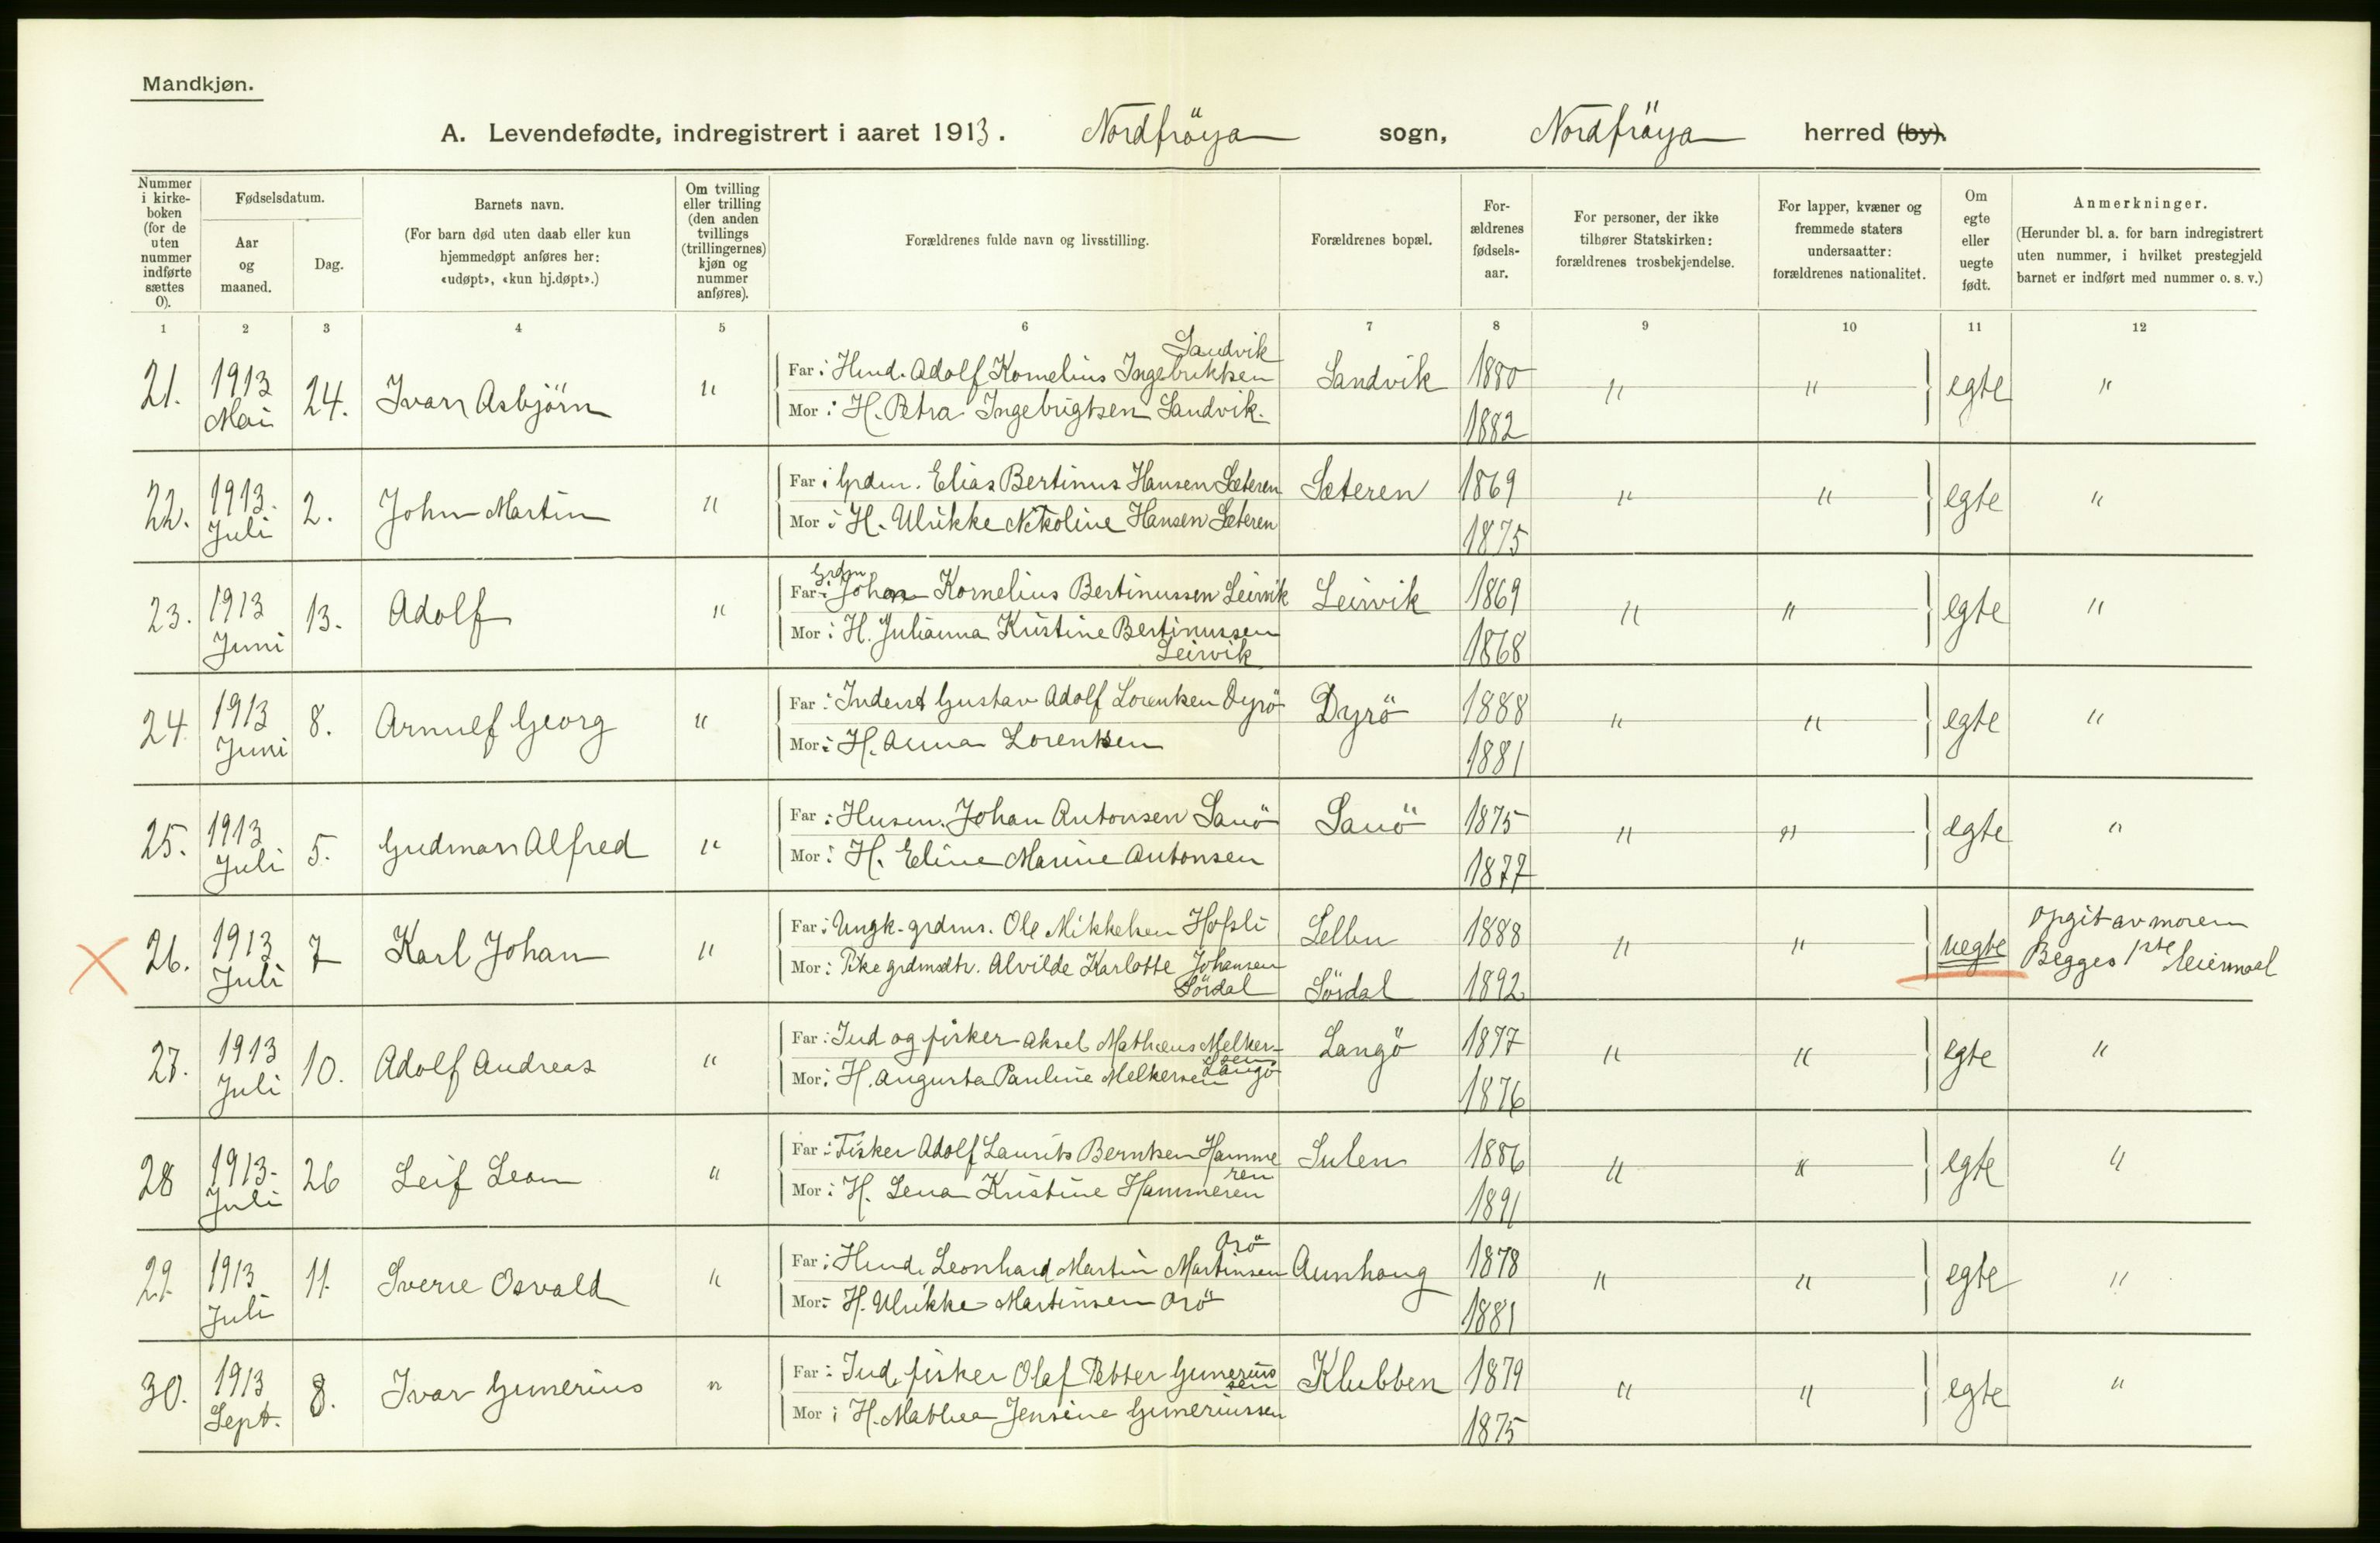 Mandkjøn.
A. Levendefødte, indregistrert i aaret 1913. Nordfröya sogn, Nordfröya herred (by).
Nummer i kirkeboken (for de uten nummer indførte sættes 0).
Fødselsdatum.
Aar og maaned.
Dag.
Barnets navn.
(For barn død uten daab eller kun hjemmedøpt anføres her: «udøpt», «kun hj.døpt».)
Om tvilling eller trilling (den anden tvillings (trillingernes) kjøn og nummer anføres).
Forældrenes fulde navn og livsstilling.
Forældrenes bopæl.
Forældrenes fødselsaar.
For personer, der ikke tilhører Statskirken: forældrenes trosbekjendelse.
For lapper, kvæner og fremmede staters undersaatter: forældrenes nationalitet.
Om egte eller uegte født.
Anmerkninger.
(Herunder bl. a. for barn indregistrert uten nummer, i hvilket prestegjeld barnet er indført med nummer o. s. v.)
1 2 3 4 5 6 7 8 9 10 11 12
21. 1913 Mai 24. Ivar Asbjörn " Far: Adolf Kornelius Ingebriktsen Sandvik Sandvik 1880 " " egte "
Mor: H. Petra Ingebrigtsen Sandvik. 1882
22. 1913. Juli 2. John Martin " Far: Grdm. Elias Bertinus Hansen Sæteren Sæteren 1869 " " egte "
Mor: H. Ulrikke Nikoline Hansen Sæteren 1875
23. 1913 Juni 13. Adolf " Far: Grdm Johan Kornelius Bertinussen Leirvik Leirvik 1869 " " egte "
Mor: H. Julianna Kristine Bertinussen Leirvik 1868
24 1913 Juni 8. Arnulf Georg " Far: Inderst Gustav Adolf Lorentsen Dyrö Dyrö 1888 " " egte "
Mor: H. Anna Lorentsen 1881
25. 1913 Juli 5. Gudman Alfred " Far: Husm. Johan Antonsen Sanö Sauö 1875 " " egte "
Mor: H. Eline Marine Antonsen 1877
26. 1913 Juli 7 Karl Johan " Far: Ungk. grdms. Ole Mikkelsen Hofsli Selbu 1888 " " uegte Opgit av moren
Mor: Pike grdmdtr. Alvilde Karlotte Johansen Sördal Sördal 1892 Begges 1ste leiermaal
27. 1913 Juli 10. Adolf Andreas " Far: Ind og fisker Aksel Mathæus Melkersen Langö Langö 1877 " " egte "
Mor: H. Augusta Pauline Melkersen 1876
28 1913. Juli 26 Leif Leon " Far: Fisker Adolf Laurits Berntsen Hammeren Sulen 1886 " " egte "
Mor: H. Lena Kristine Hammeren 1891
29. 1913 Juli 11. Sverre Osvald " Far: Leonhard Martin Martinsen Orö Aunhaug 1878 " " egte "
Mor: H. Ulrikke Martinsen Orö 1881
30. 1913 Sept. 8. Ivar Gunerius " Far: Ind. fisker Olaf Petter Guneriussen Klubben 1879 " " egte "
Mor: H. Mathea Jensine Guneriussen 1875